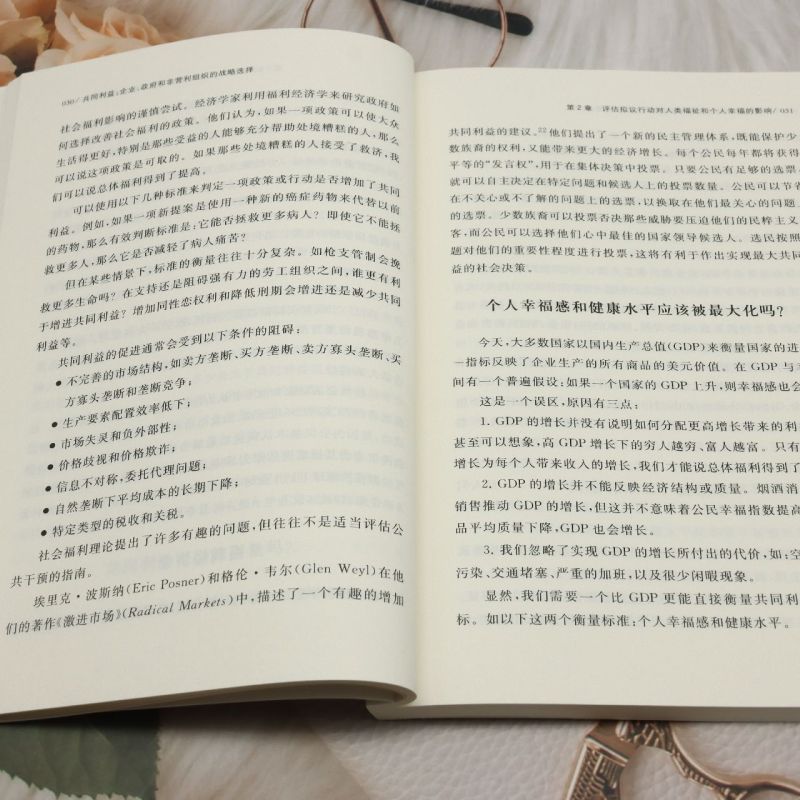 030/ 共同利益：企业、政府和非营利组织的战略选择
社会福利影响的谨慎尝试。经济学家利用福利经济学来研究政府如
何选择改善社会福利的政策。他们认为，如果一项政策可以使大众
生活得更好，特别是那些受益的人能够充分帮助处境糟糕的人，那么
可以说这项政策是可取的。如果那些处境糟糕的人接受了救济，我
们可以说总体福利得到了提高。
可以使用以下几种标准来判定一项政策或行动是否增加了共同
利益。例如，如果一项新提案是使用一种新的癌症药物来代替以前
的药物，那么有效判断标准是：它能否拯救更多病人？即使它不能拯
救更多人，那么它是否减轻了病人痛苦？
但在某些情景下，标准的衡量往往十分复杂。如枪支管制会挽
救更多生命吗？在支持还是阻碍强有力的劳工组织之间，谁更有利
于增进共同利益？增加同性恋权利和降低刑期会增进还是减少共同
利益等。
共同利益的促进通常会受到以下条件的阻碍：
● 不完善的市场结构，如卖方垄断、买方垄断、卖方寡头垄断、买
方寡头垄断和垄断竞争；
● 生产要素配置效率低下；
● 市场失灵和负外部性；
● 价格歧视和价格欺诈；
● 信息不对称，委托代理问题；
● 自然垄断下平均成本的长期下降；
● 特定类型的税收和关税。
社会福利理论提出了许多有趣的问题，但往往不是适当评估公
共干预的指南。
埃里克·波斯纳(Eric Posner)和格伦·韦尔(Glen Weyl)在他
们的著作《激进市场》(Radical Markets)中，描述了一个有趣的增加
第2章 评估拟议行动对人类福祉和个人幸福的影响/ 031
共同利益的建议。22他们提出了一个新的民主管理体系，既能保护少
数族裔的权利，又能带来更大的经济增长。每个公民每年都将获得
平等的“发言权”，用于在集体决策中投票。只要公民有足够的选票，
就可以自主决定在特定问题和候选人上的投票数量。公民可以节约
在不关心或不了解的问题上的选票，以换取在他们最关心的问题上
的选票。少数族裔可以投票否决那些威胁要压迫他们的民粹主义
客，而公民可以选择他们心中最佳的国家领导候选人。选民按照
题对他们的重要性程度进行投票，这将有利于作出实现最大共同
益的社会决策。
个人幸福感和健康水平应该被最大化吗？
今天，大多数国家以国内生产总值(GDP)来衡量国家的进
一指标反映了企业生产的所有商品的美元价值。在 GDP 与
间有一个普遍假设：如果一个国家的 GDP 上升，则幸福感也会
这是一个误区，原因有三点：
1. GDP 的增长并没有说明如何分配更高增长带来的利
甚至可以想象，高 GDP 增长下的穷人越穷、富人越富。只有
增长为每个人带来收入的增长，我们才能说总体福利得到了
2. GDP 的增长并不能反映经济结构或质量。烟酒消
销售推动 GDP 的增长，但这并不意味着公民幸福指数提高
品平均质量下降，GDP 也会增长。
3. 我们忽略了实现 GDP 的增长所付出的代价，如：空
污染、交通堵塞、严重的加班，以及很少闲暇现象。
显然，我们需要一个比 GDP 更能直接衡量共同利
标。如以下这两个衡量标准：个人幸福感和健康水平。